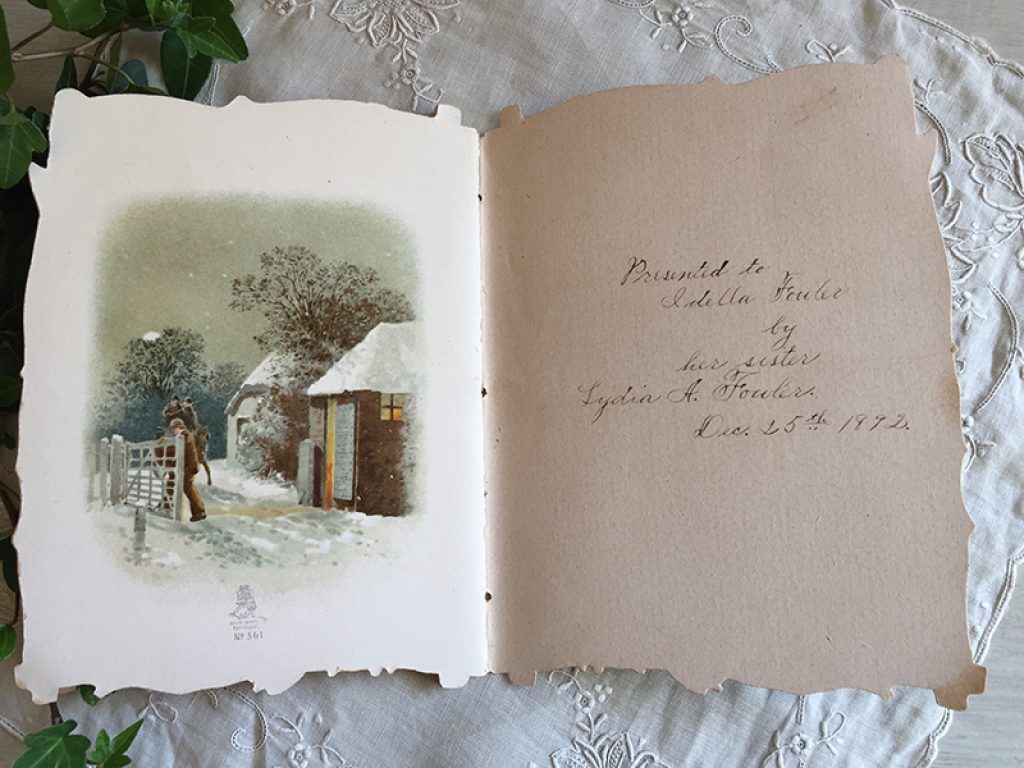 Nº 561
Presented to
Idella Fowler
by
her sister
Lydia A. Fowler.
Dec. 25th 1892.